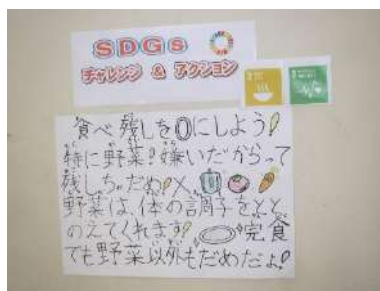 SDGs
チャレンジ & アクション
食べ残しを0にしよう!
特に野菜!嫌いだからって
残しちゃだめ!
野菜は、体の調子をとと
のえてくれます! 完食
でも野菜以外もだめだよ!